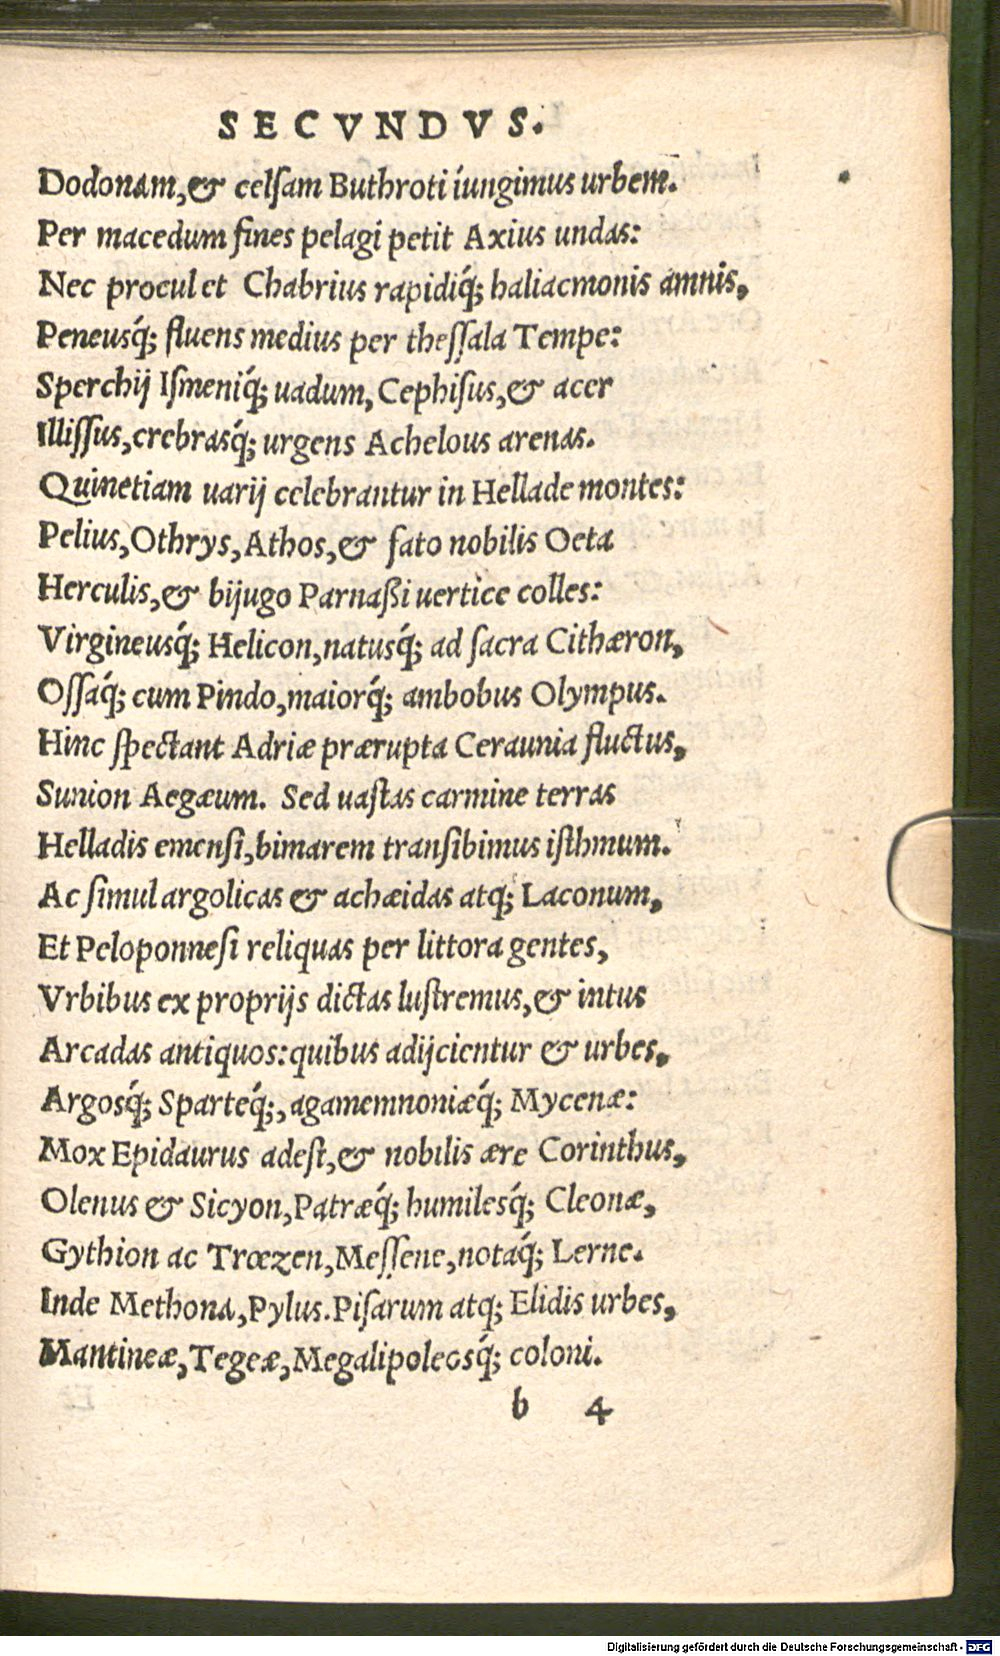 SECVNDVS.
Dodonam,& celſam Buthroti iungimus urbem.
Per macedum fines pelagi petit Axius undas:
Nec procul et Chabrius rapidiq́; haliacmonis amnis,
Peneusq́; fluens medius per theſſala Tempe:
Sperchij Iſmeniq́; uadum, Cephiſus,& acer
Illiſſus,crebrasq́; urgens Achelous arenas.
Quinetiam uarij celebrantur in Hellade montes:
Pelius,Othrys,Athos,& fato nobilis Oeta
Herculis,& bijugo Parnaßi uertice colles:
Virgineusq́; Helicon,natusq́; ad ſacra Cithæron,
Oſſaq́; cum Pindo,maiorq́; ambobus Olympus.
Hinc ſpectant Adriæ prærupta Ceraunia fluctus,
Sunion Aegæum. Sed uaſtas carmine terras
Helladis emenſi,bimarem tranſibimus iſthmum.
Ac ſimul argolicas & achæidas atq; Laconum,
Et Peloponneſi reliquas per littora gentes,
Vrbibus ex proprijs dictas luſtremus,& intus
Arcadas antiquos:quibus adijcientur & urbes,
Argosq́; Sparteq́;,agamemnoniæq́; Mycenæ:
Mox Epidaurus adeſt,& nobilis ære Corinthus,
Olenus & Sicyon,Patræq́; humilesq́; Cleonæ,
Gythion ac Trœzen,Meſſene,notaq́; Lerne.
Inde Methona,Pylus.Piſarum atq; Elidis urbes,
Mantineæ,Tegeæ,Megalipoleosq́; coloni.
b 4
Digitalisierung gefördert durch die Deutsche Forschungsgemeinschaft - DFG